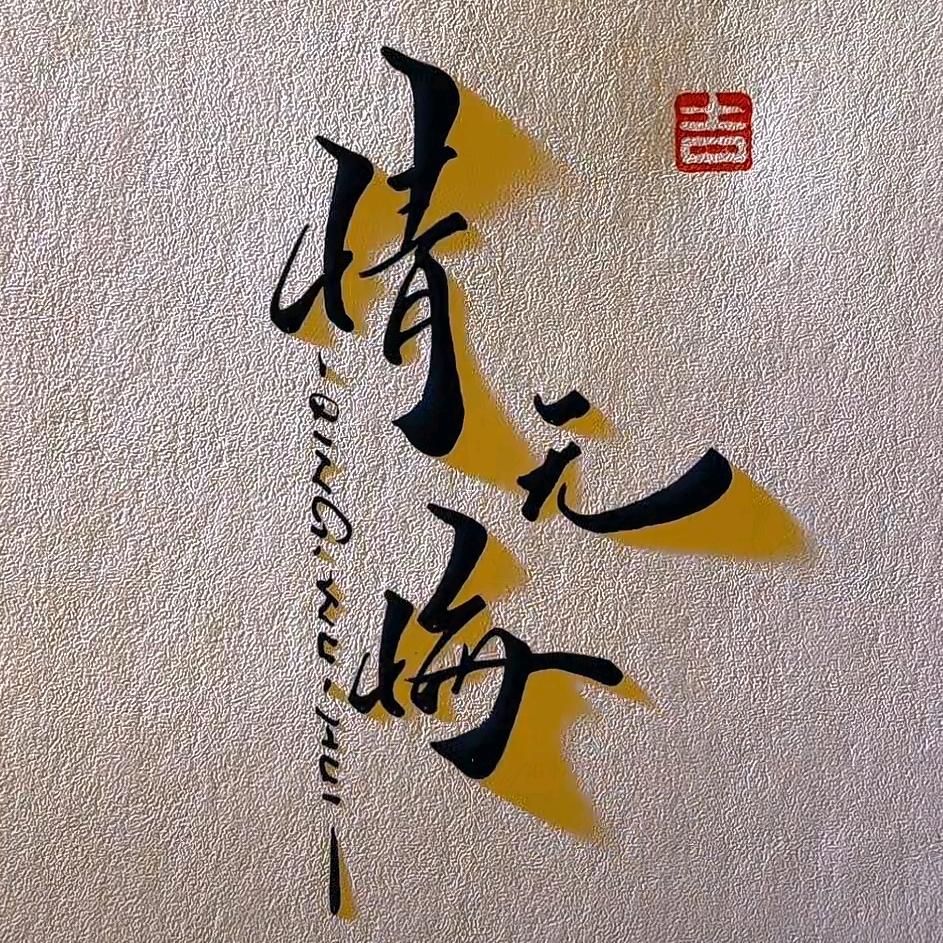 情无悔
QING WU HUI
吉